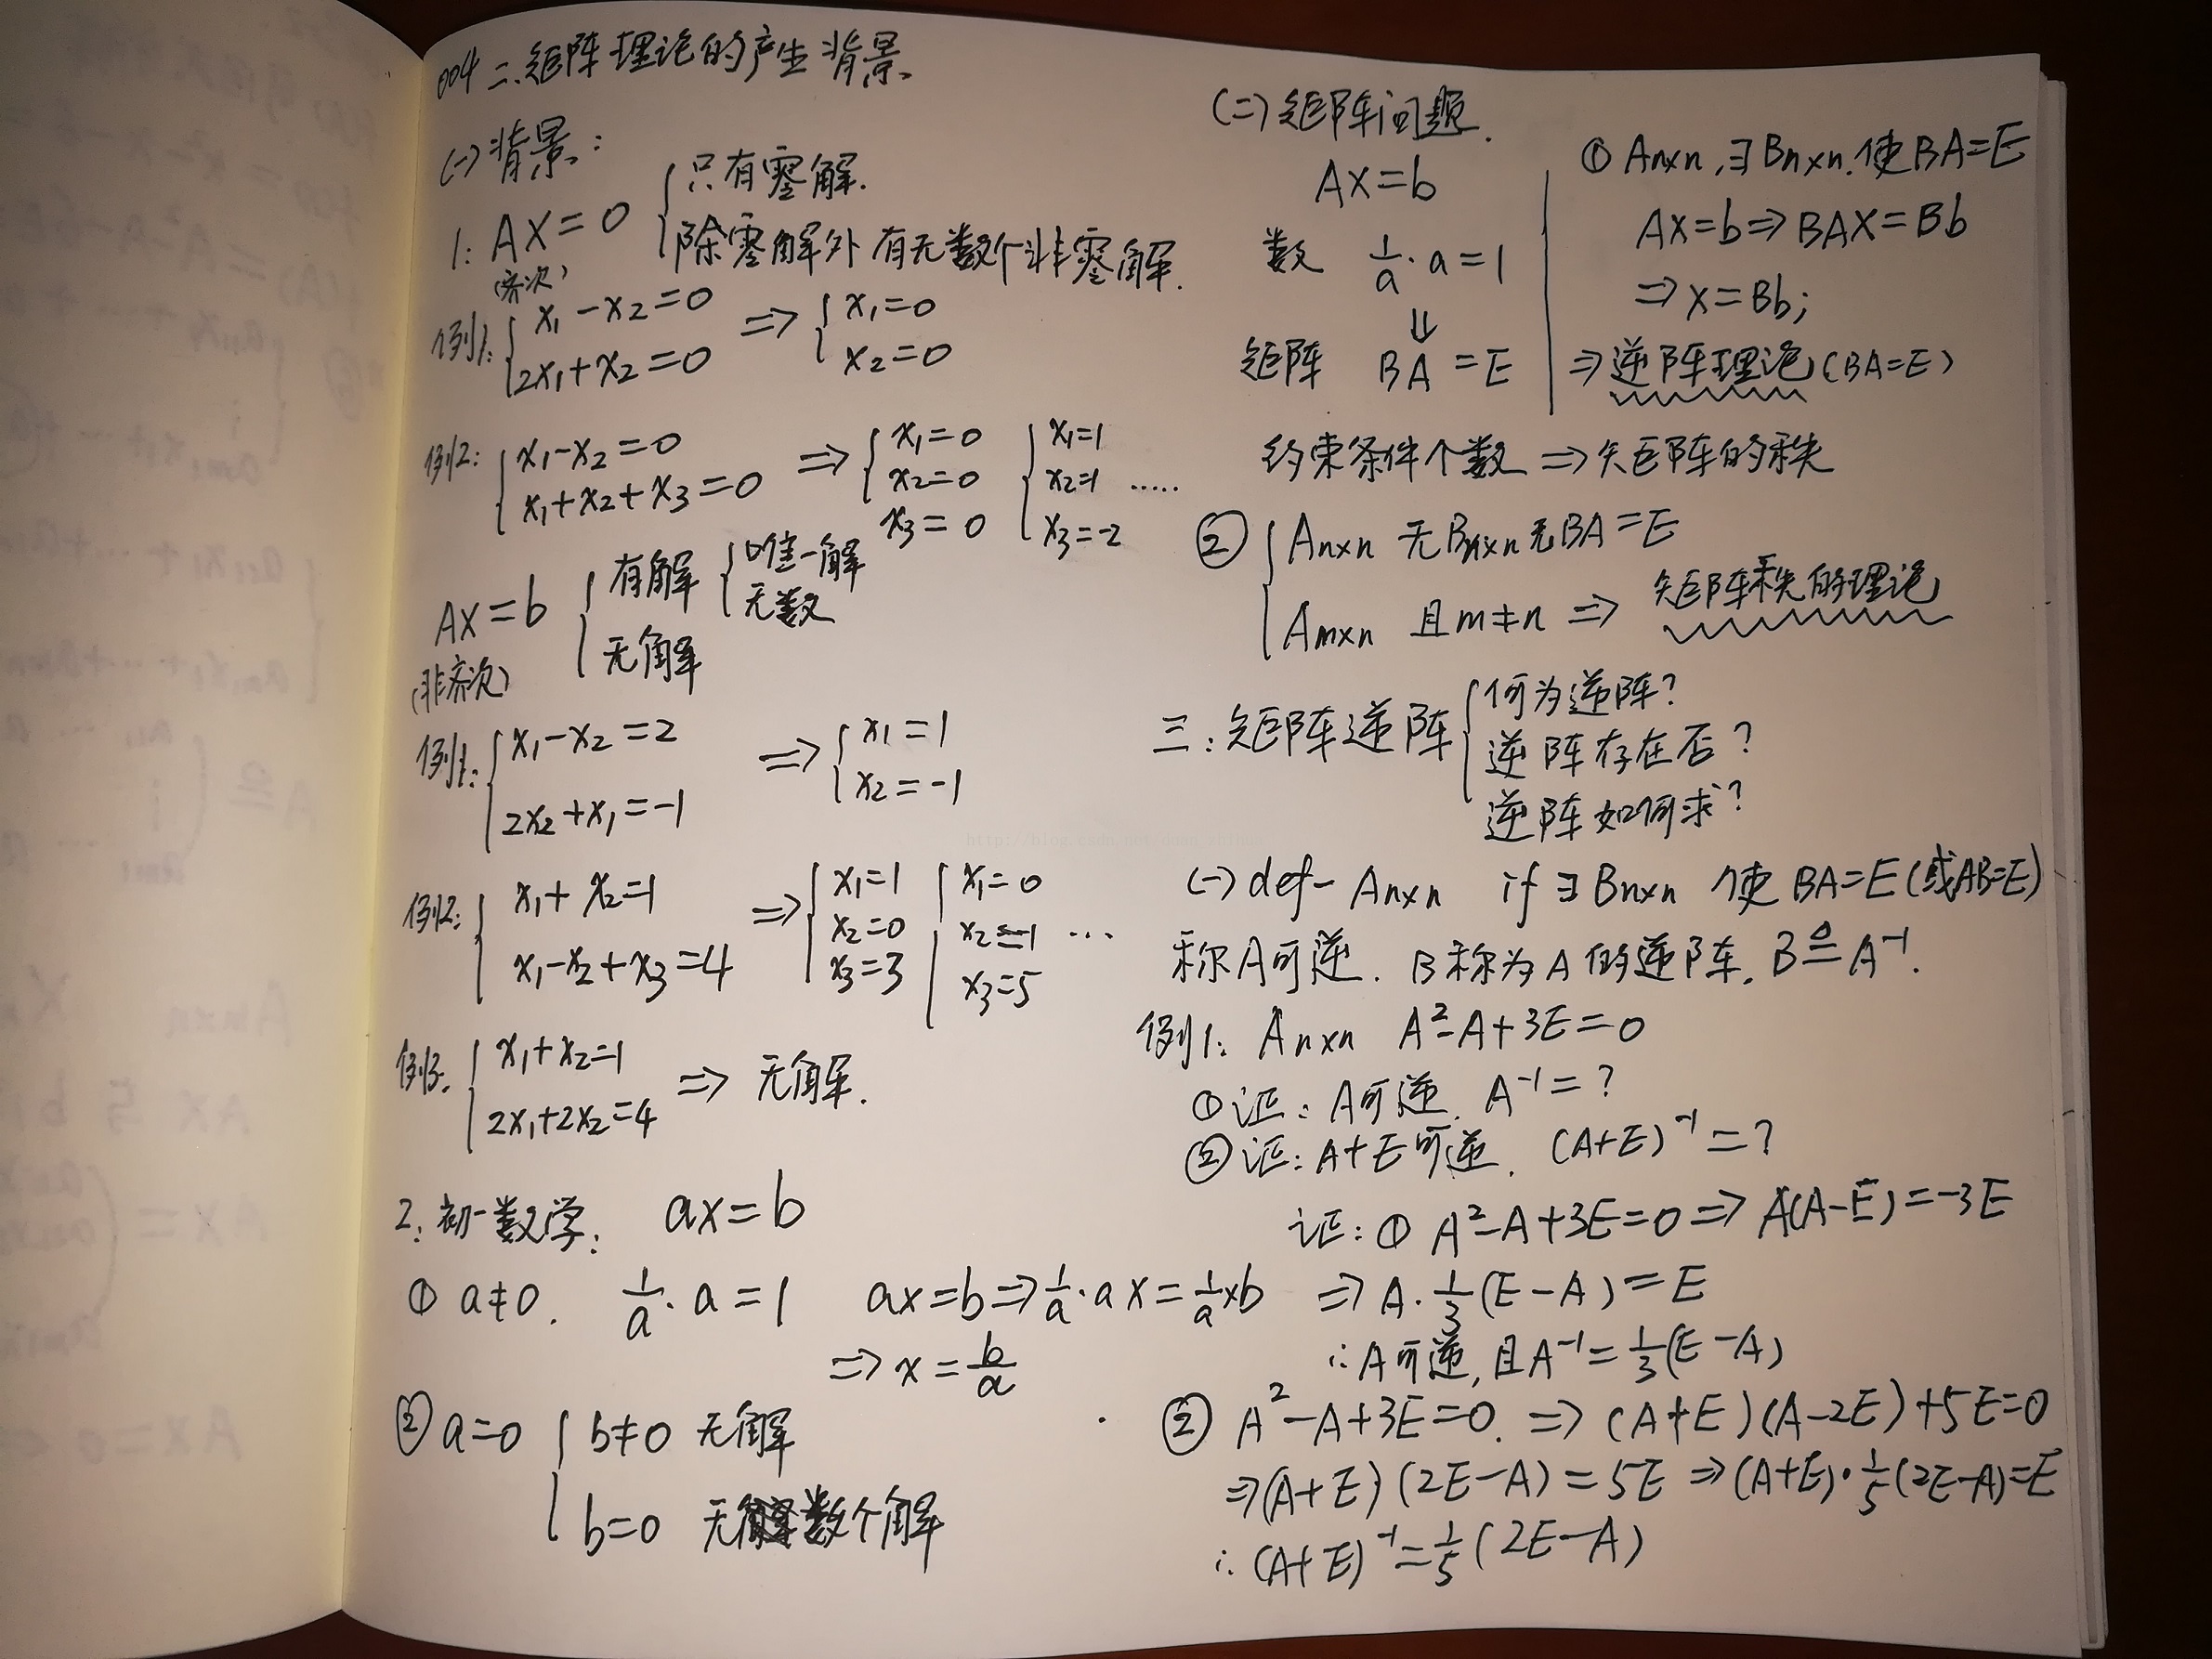 004 二.矩阵理论的产生背景
(一)背景:
1: AX=0 { 只有零解.
(齐次) 除零解外有无数个非零解.
例1: { x₁-x₂=0 ⇒ { x₁=0
2x₁+x₂=0 x₂=0
例2: { x₁-x₂=0 ⇒ { x₁=0 { x₁=1
x₁+x₂+x₃=0 x₂=0 x₂=1 .....
x₃=0 x₃=-2
AX=b { 有解 { 唯一解
无数
(非齐次) 无解
例1: { x₁-x₂=2 ⇒ { x₁=1
2x₂+x₁=-1 x₂=-1
例2: { x₁+x₂=1 ⇒ { x₁=1 { x₁=0
x₂=0 x₂=1 ...
x₁-x₂+x₃=4 x₃=3 x₃=5
例3. { x₁+x₂=1 ⇒ 无解.
2x₁+2x₂=4
2.初一数学: ax=b
① a≠0. 1/a·a=1 ax=b⇒1/a·ax=1/a×b
⇒x=b/a
② a=0 { b≠0 无解
b=0 无数个解
(二)矩阵问题.
AX=b
数 1/a·a=1
⇓
矩阵 BA=E
① Aₙₓₙ,∃Bₙₓₙ.使BA=E
AX=b⇒BAX=Bb
⇒X=Bb;
⇒逆阵理论(BA=E)
约束条件个数⇒矩阵的秩
② { Aₙₓₙ 无Bₙₓₙ无BA=E
Aₘₓₙ 且m≠n ⇒ 矩阵秩的理论
三:矩阵逆阵 { 何为逆阵?
逆阵存在否?
逆阵如何求?
(一)def- Aₙₓₙ if ∃Bₙₓₙ 使BA=E(或AB=E)
称A可逆. B称为A的逆阵. B≜A⁻¹.
例1: Aₙₓₙ A²-A+3E=0
①证:A可逆. A⁻¹=?
②证:A+E可逆. (A+E)⁻¹=?
证:① A²-A+3E=0⇒A(A-E)=-3E
⇒A·1/3(E-A)=E
∴A可逆,且A⁻¹=1/3(E-A)
② A²-A+3E=0. ⇒(A+E)(A-2E)+5E=0
⇒(A+E)(2E-A)=5E⇒(A+E)·1/5(2E-A)=E
∴(A+E)⁻¹=1/5(2E-A)